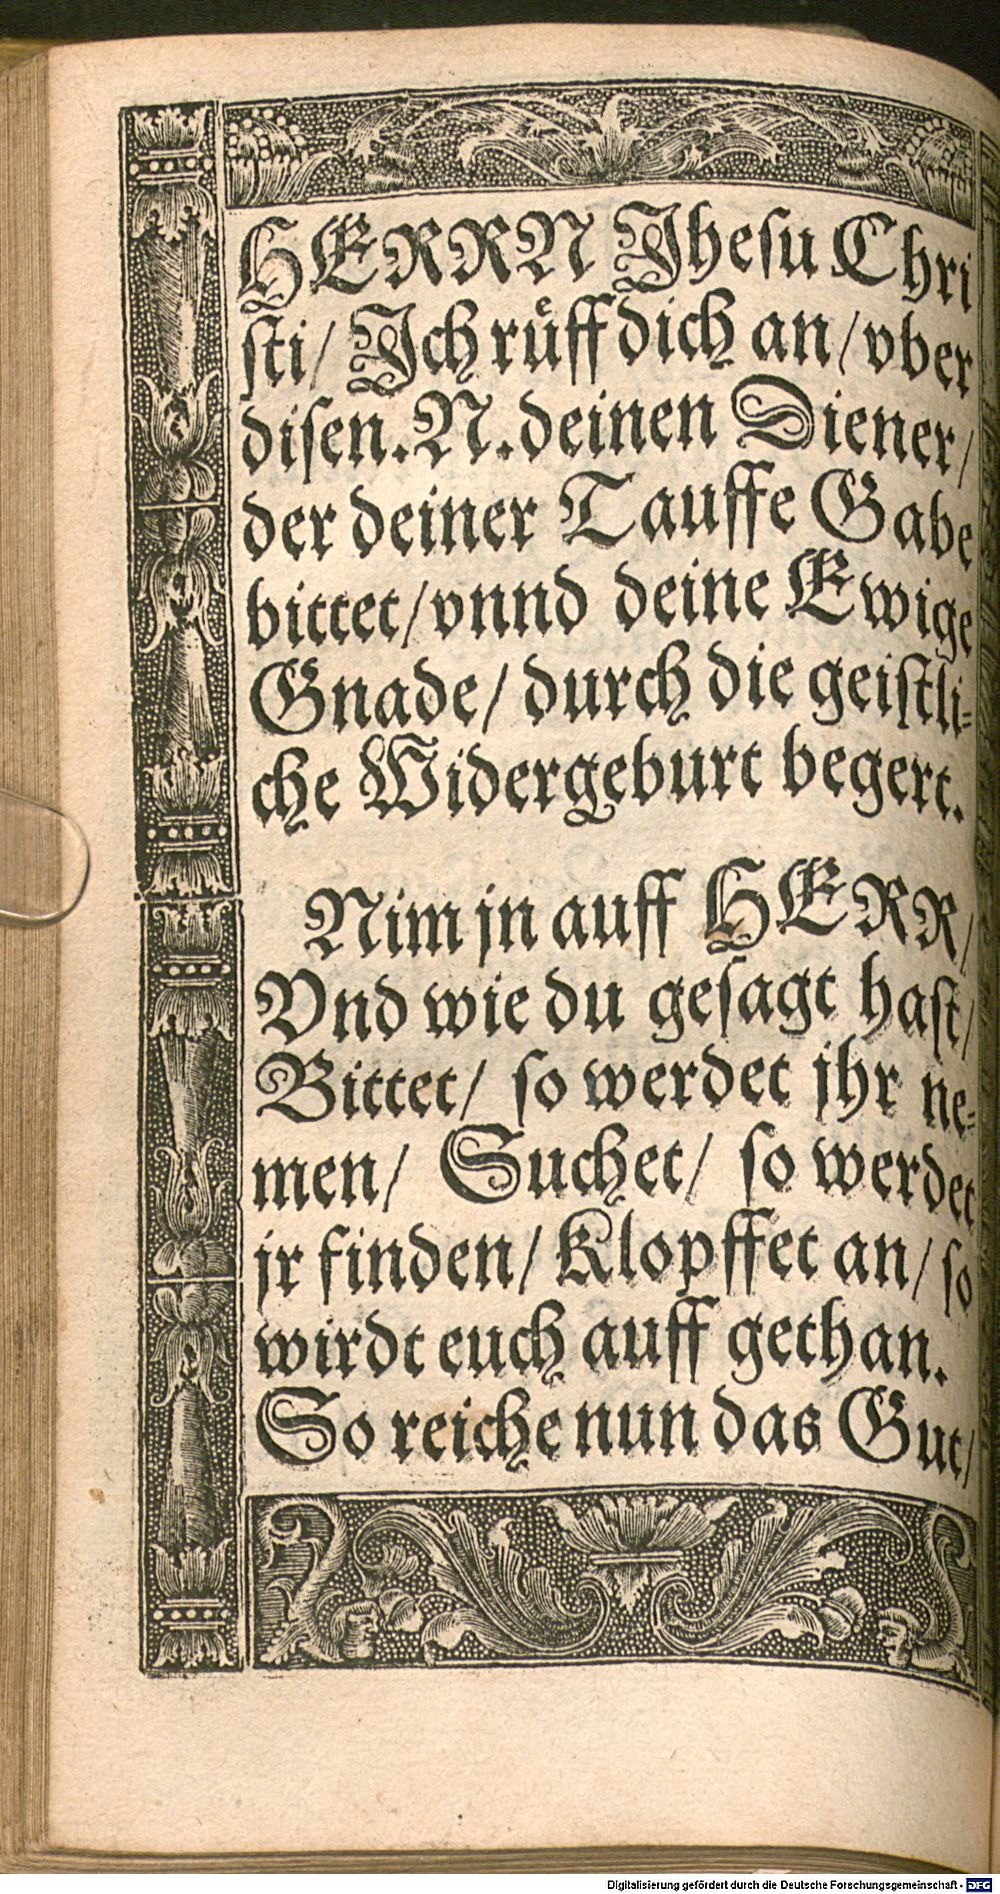 HERRN Jhesu Chri
ſti/ Jch růff dich an/ vber
diſen. N. deinen Diener/
der deiner Tauffe Gabe
bittet/ vnnd deine Ewige
Gnade/ durch die geiſtli-
che Widergeburt begert.
Nim jn auff HERR/
Vnd wie du geſagt haſt/
Bittet/ ſo werdet jhr ne-
men/ Suchet/ ſo werdet
jr finden/ Klopffet an/ ſo
wirdt euch auff gethan.
So reiche nun das Gut/
Digitalisierung gefördert durch die Deutsche Forschungsgemeinschaft - DFG